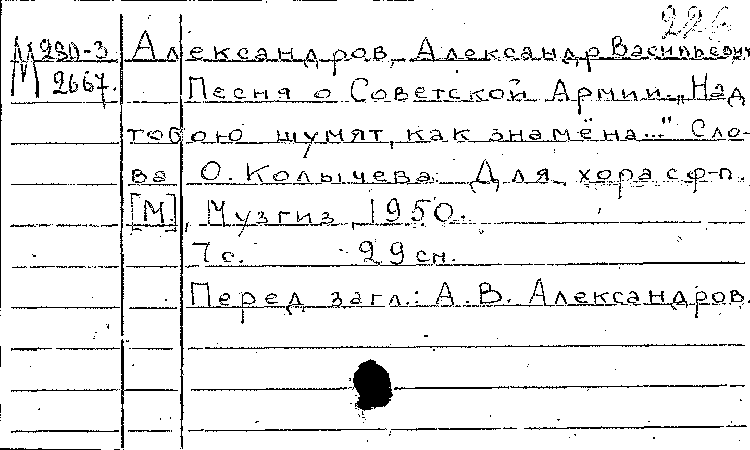 226
М 280-3 Александров, Александр Васильевич
2667. Песня о Советской Армии. „Над
тобою шумят, как знамёна..." Сло-
ва О. Колычева. Для хора с ф-п.
[М.], Музгиз, 1950.
7 с. 29 см.
Перед загл.: А. В. Александров.